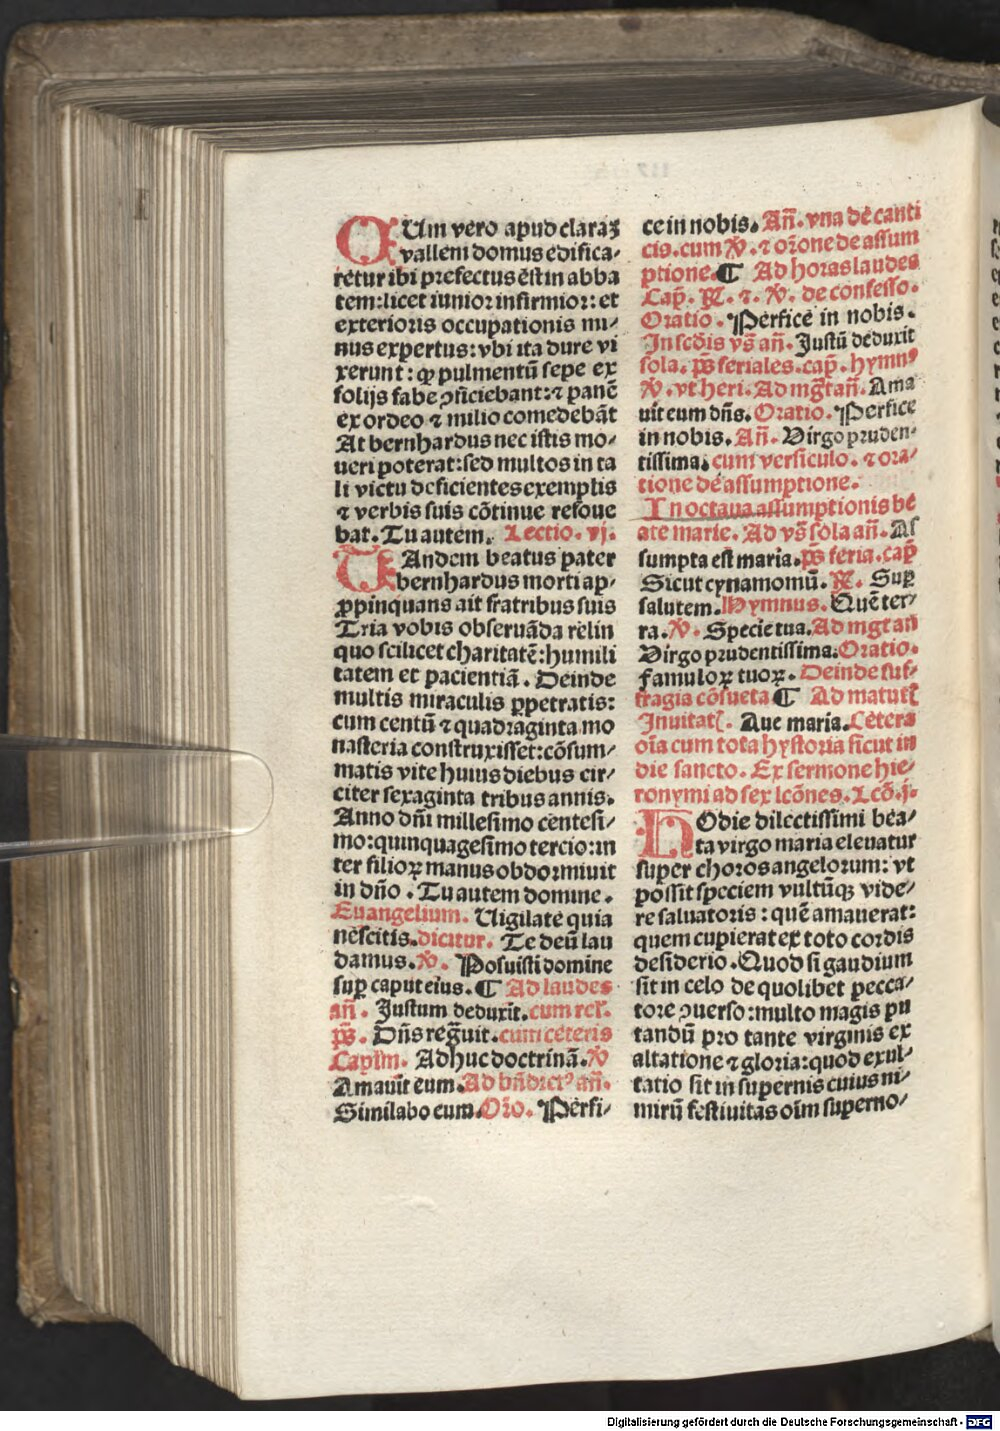 CUm vero apud claraꝫ
vallem domus edifica⸗
retur ibi prefectus ēst in abba
tem: licet iunior infirmior: et
exterioris occupationis mi⸗
nus expertus: vbi ita dure vi
xerunt: ꝙ pulmentū sepe ex
folijs fabe ꝯficiebant: ⁊ panē
ex ordeo ⁊ milio comedebāt
At bernhardus nec istis mo⸗
ueri poterat: sed multos in ta
li victu deficientes exemplis
⁊ verbis suis cōtinue refoue
bat. Tu autem. Lectio. vj.
TAndem beatus pater
bernhardus morti ap⸗
ꝓpinquans ait fratribus suis
Tria vobis obseruāda relin
quo scilicet charitatē: humili
tatem et pacientiā. Deinde
multis miraculis ꝑpetratis:
cum centū ⁊ quadraginta mo
nasteria construxisset: cōsum⸗
matis vite huius diebus cir⸗
citer sexaginta tribus annis.
Anno dn̄i millesimo centesi⸗
mo: quinquagesimo tercio: in
ter filioꝝ manus obdormiuit
in dn̄o. Tu autem domine.
Euangelium. Uigilate quia
nescitis. dicitur. Te deū lau
damus. ℣. Posuisti domine
suꝑ caput eius. ¶ Ad laudes
an̄. Justum deduxit. cum rel̄.
ps̄. Dn̄s regn̄uit. cum ceteris
Caplm. Adhuc doctrinā. ℣
Amauit eum. Ad bn̄dictꝰ an̄.
Similabo eum. Or̄o. Perfi⸗
ce in nobis. An̄. vna de canti
cis. cum ℣. ⁊ or̄one de assum
ptione. ¶ Ad horas laudes
Cap̄. ℟. ⁊. ℣. de confesso.
Oratio. Perfice in nobis.
In scd̄is vs̄ an̄. Justū deduxit
sola. ps̄ feriales. cap̄. hymnꝰ
℣. vt heri. Ad mgt̄ an̄. Ama
uit eum dn̄s. Oratio. Perfice
in nobis. An̄. Virgo pruden⸗
tissima. cum versiculo. ⁊ ora⸗
tione de assumptione.
In octaua assumptionis be
ate marie. Ad vs̄ sola an̄. As
sumpta est maria. ps̄ feria. cap̄
Sicut cynamomū. ℟. Suꝑ
salutem. Hymnus. Quē ter⸗
ra. ℣. Specie tua. Ad mgt̄ an̄
Virgo prudentissima. Oratio.
Famuloꝝ tuoꝝ. Deinde suf⸗
fragia cōsueta ¶ Ad matut̄
Inuitat̄. Aue maria. Cetera
oīa cum tota hystoria sicut in
die sancto. Ex sermone hie⸗
ronymi ad sex lcōnes. Lcō. j.
HOdie dilectissimi bea⸗
ta virgo maria eleuatur
super choros angelorum: vt
possit speciem vultūqꝫ vide⸗
re saluatoris: quē amauerat:
quem cupierat ex toto cordis
desiderio. Quod si gaudium
sit in celo de quolibet pecca⸗
tore ꝯuerso: multo magis pu
tandū pro tante virginis ex
altatione ⁊ gloria: quod exul⸗
tatio sit in supernis cuius ni⸗
mirū festiuitas oīm superno⸗
Digitalisierung gefördert durch die Deutsche Forschungsgemeinschaft - DFG